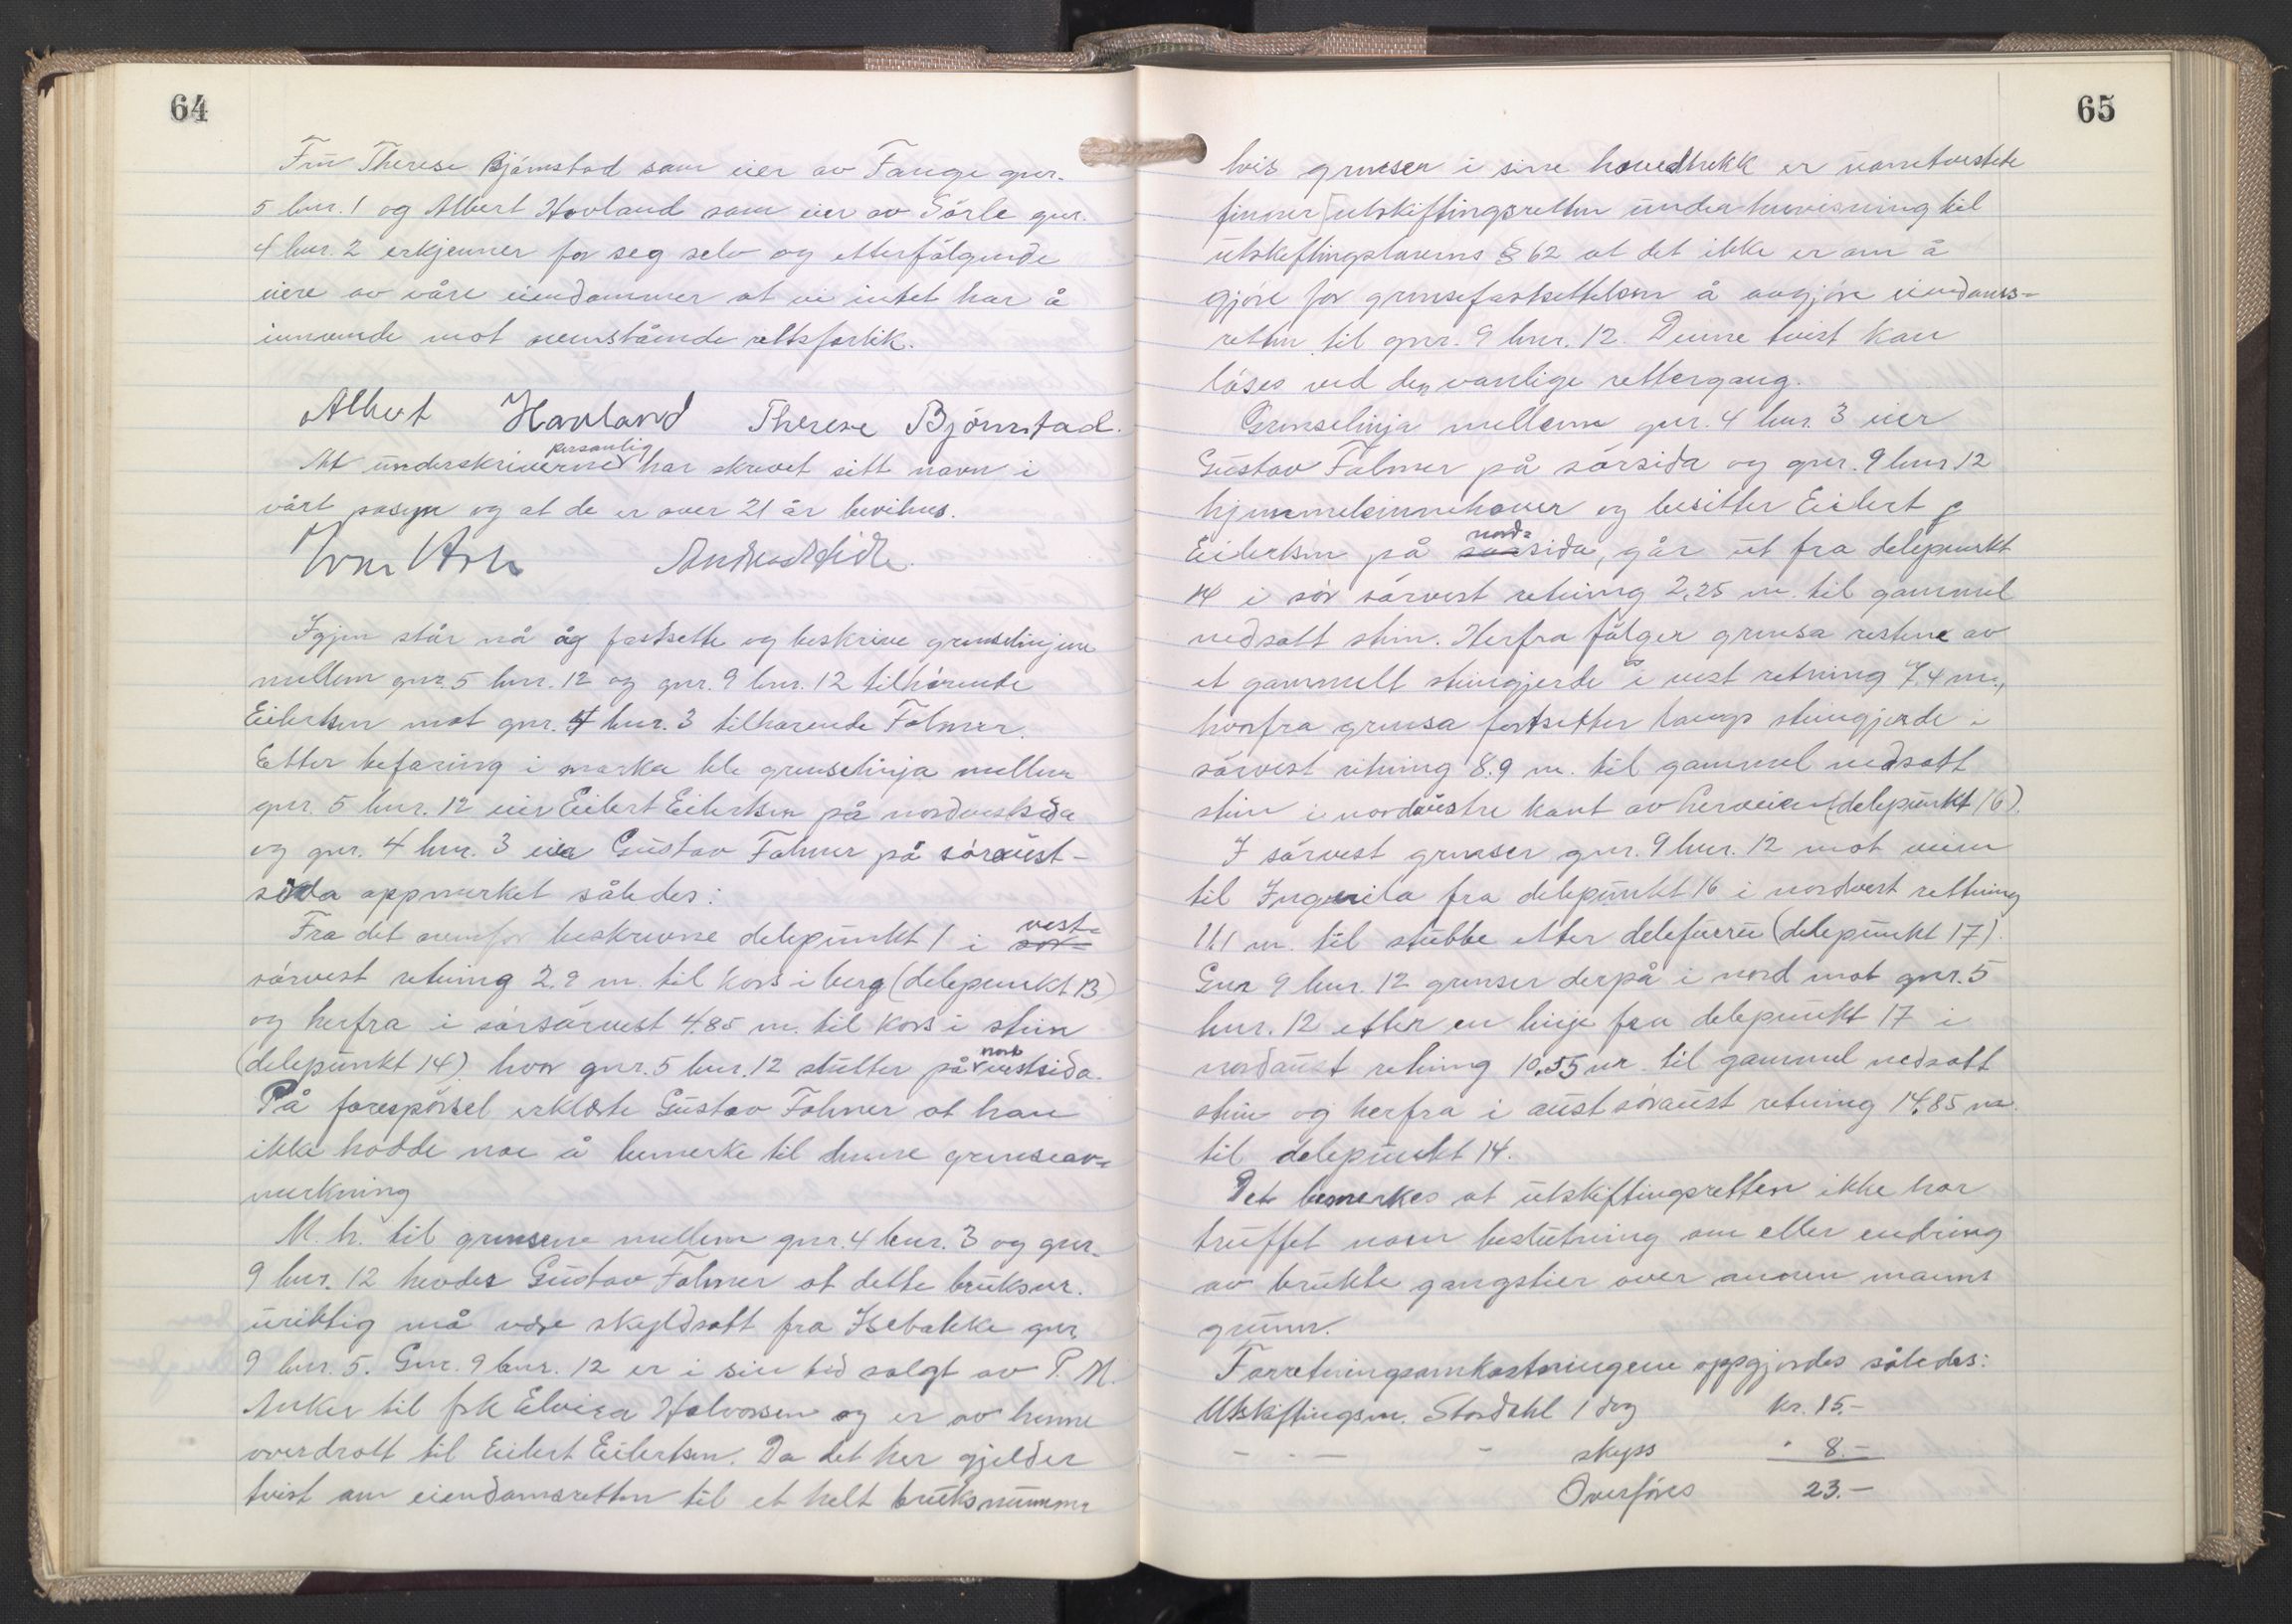 64
Frú Therese Bjørnstad som eier av Tange gnr.
5 bnr. 1 og Albert Hovland som eier av Sørle gnr.
4 bnr. 2 erkjenner for seg selv og etterfølgende
eiere av våre eiendommer at vi intet har å
innvende mot ovenstående rettsforlik.
Albert Havland Therese Bjørnstad.
personlig
At underskriverne har skrevet sitt navn i
vårt påsyn og at de er over 21 år bevitnes.
Igjen står nå åg fastsette og beskrive grenselinjene
mellem gnr. 5 bnr. 12 og gnr. 9 bnr. 12 tilhørende
Eilertsen mot gnr. 4 bnr. 3 tilhørende Folmer.
Etter befaring i marka ble grenselinja mellem
gnr. 5 bnr. 12 eier Eilert Eilertsen på nordvestsida
og gnr. 4 bnr. 3 eier Gustav Folmer på søraust-
sida oppmerket således:
vest-
Fra det ovenfor beskrevne delepunkt 1 i sør-
sørvest retning 2,9 m. til kors i berg (delepunkt 13)
og herfra i sørsørvest 4.85 m. til kors i stein
nord
(delepunkt 14) hvor gnr. 5 bnr. 12 slutter på vestsida.
På forespørsel erklærte Gustav Folmer at han
ikke hadde noe å bemerke til denne grenseav-
merkning
M. h. til grensene mellem gnr. 4 bnr. 3 og gnr.
9 bnr. 12 hevder Gustav Folmer at dette bruksnr.
uriktig må være skyldsatt fra Isebakke gnr.
9 bnr. 5. Gnr. 9 bnr. 12 er i sin tid solgt av P. M.
Anker til frk Elvira Halvorsen og er av henne
overdratt til Eilert Eilertsen. Da det her gjelder
tvist om eiendomsretten til et helt bruksnummer
65
hvis grenser i sine hovedtrekk er uomtvistete
finner utskiftingsretten under henvisning til
utskiftingslovens § 62 at det ikke er om å
gjøre for grensefastsettelsen å avgjøre eiendoms-
retten til gnr. 9 bnr. 12. Denne tvist kan
løses ved den vanlige rettergang.
Grenselinja mellem gnr. 4 bnr. 3 eier
Gustav Folmer på sørsida og gnr. 9 bnr 12
hjemmelsinnehaver og besitter Eilert
nord-
Eilertsen på sørsida, går ut fra delepunkt
14 i sør sørvest retning 2,25 m. til gammel
nedsatt stein. Herfra følger grensa restene av
et gammelt steingjerde i vest retning 7.4 m.,
hvorfra grensa fortsetter langs steingjerde i
sørvest retning 8.9 m. til gammel nedsatt
stein i nordaustre kant av herveien (delepunkt 16).
I sørvest grenser gnr. 9 bnr. 12 mot veien
til fra delepunkt 16 i nordvest rettning
11.1 m. til stubbe etter delefuru (delepunkt 17).
Gnr 9 bnr. 12 grenser derpå i nord mot gnr. 5
bnr. 12 etter en linje fra delepunkt 17 i
nordaust retning 10.55 m. til gammel nedsatt
stein og herfra i austsøraust retning 14.85 m.
til delepunkt 14.
Det bemerkes at utskiftingsretten ikke har
truffet noen beslutning om eller endring
av brukte gangstier over annen manns
grunn.
Forretningsomkostningene oppgjordes således:
Utskiftingsm. Stordahl 1 dag kr. 15.-
- - - - skyss " 8.-
Overføres 23.-